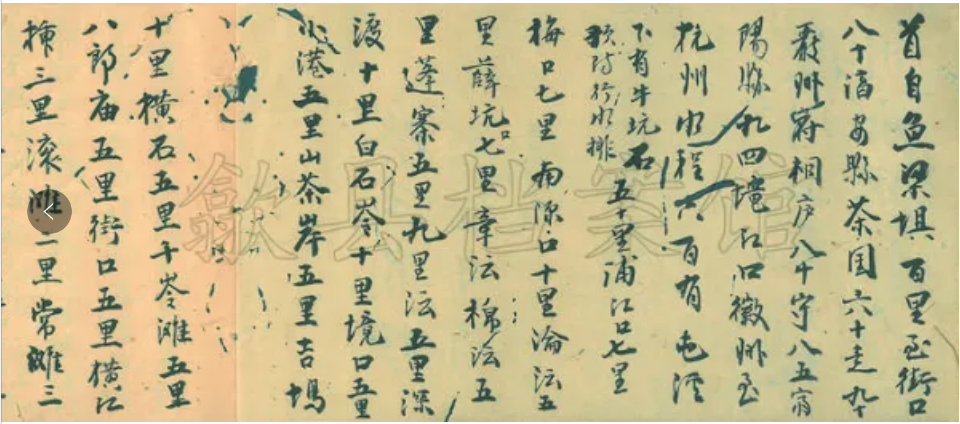 首自魚梁埧百里至街口
八十淳安縣茶园六十走九十
嚴州府桐庐八十守八五富
陽縣九四壠江口徽州至
杭州水程六百有屯溪
下有牛坑石五十里浦江口七里
狭防行水排
梅口七里南源口十里淪沄五
里薛坑口七里章沄棉沄五
里蓬寨五里九里沄五里深
渡十里白石岺十里境口五里
小港五里山茶岸五里吉塢
十里横石五里十岺滩五里
八郎庙五里街口五里横江
三里滚滩一里常滩三
歙县档案馆